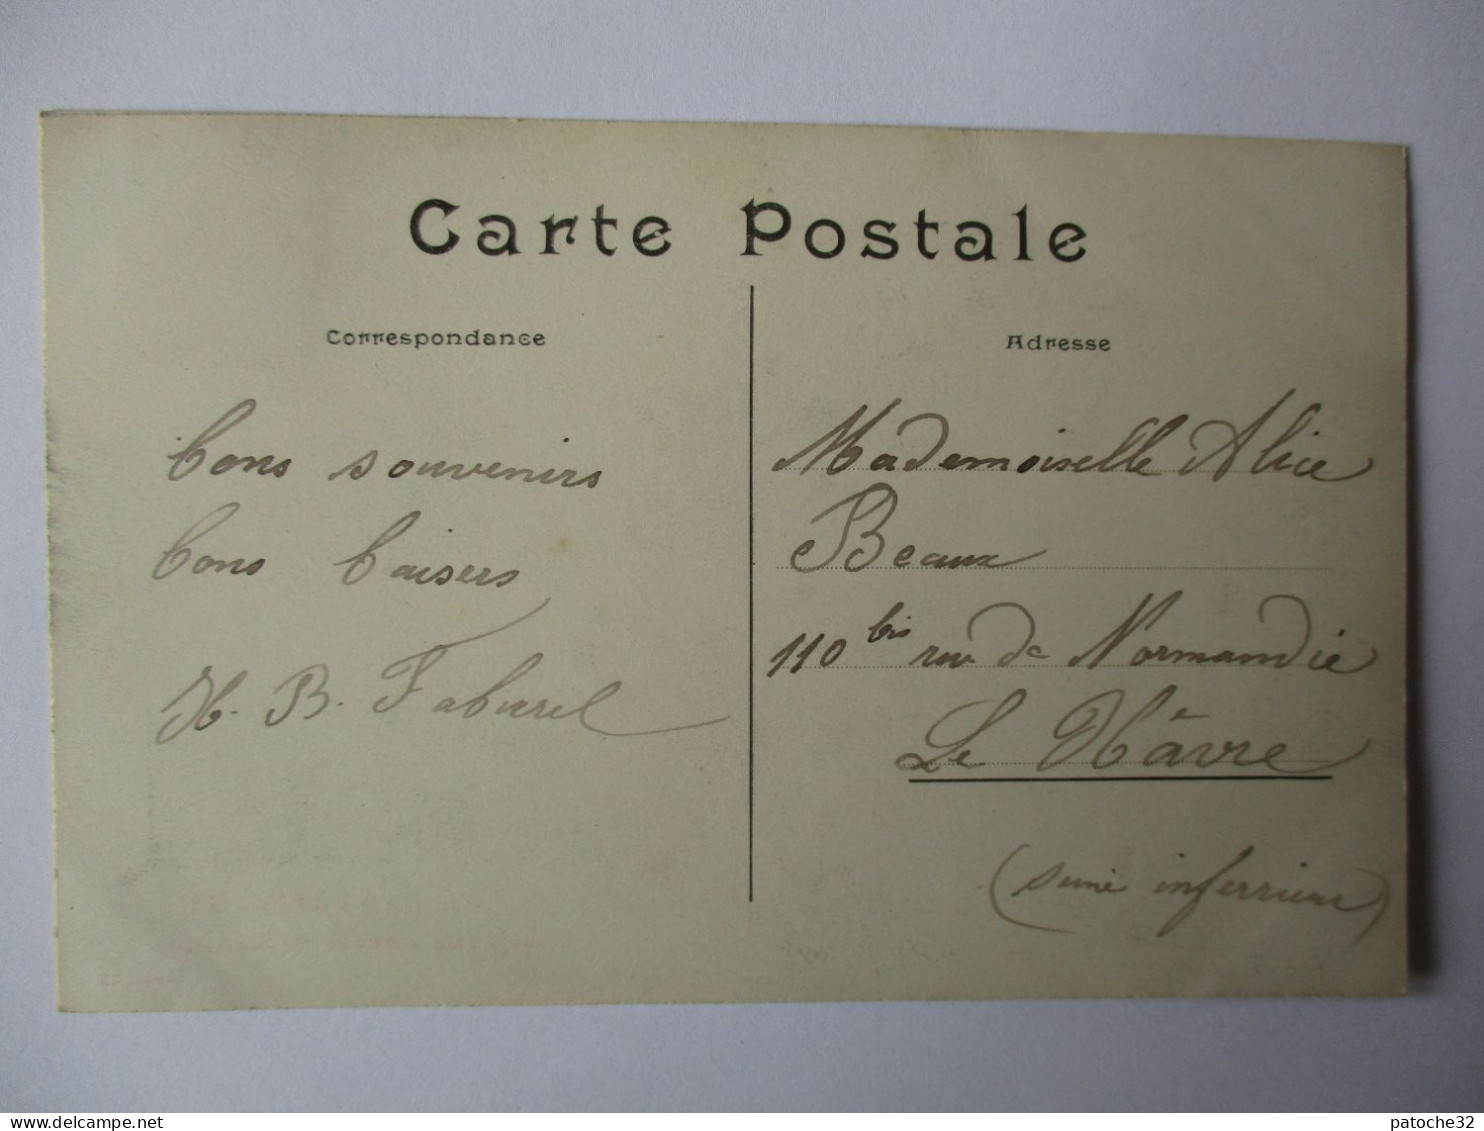 Carte Postale
Correspondance
bons souvenirs
bons baisers
H. B. Faburel
Adresse
Mademoiselle Alice
Beaux
110 bis rue de Normandie
Le Hâvre
(seine inferrieure)
patoche32